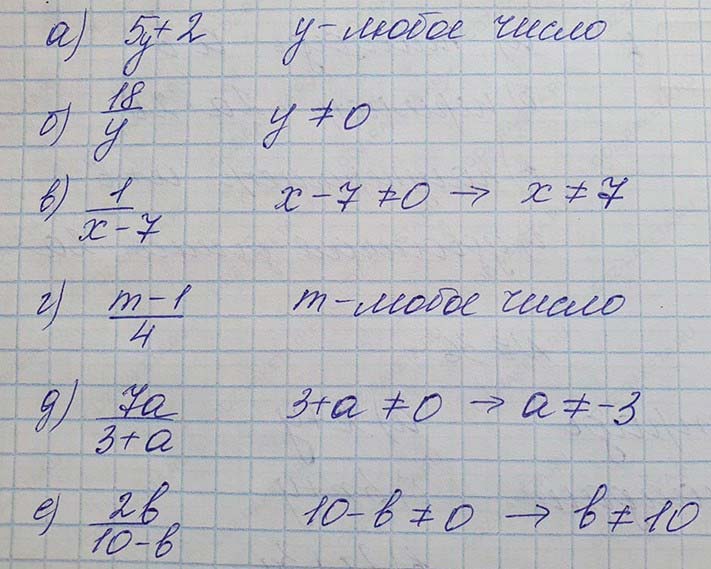 а) 5y+2 y-любое число
б) 18/y y≠0
в) 1/(x-7) x-7≠0 → x≠7
г) (m-1)/4 m-любое число
д) 7a/(3+a) 3+a≠0 → a≠-3
е) 2b/(10-b) 10-b≠0 → b≠10